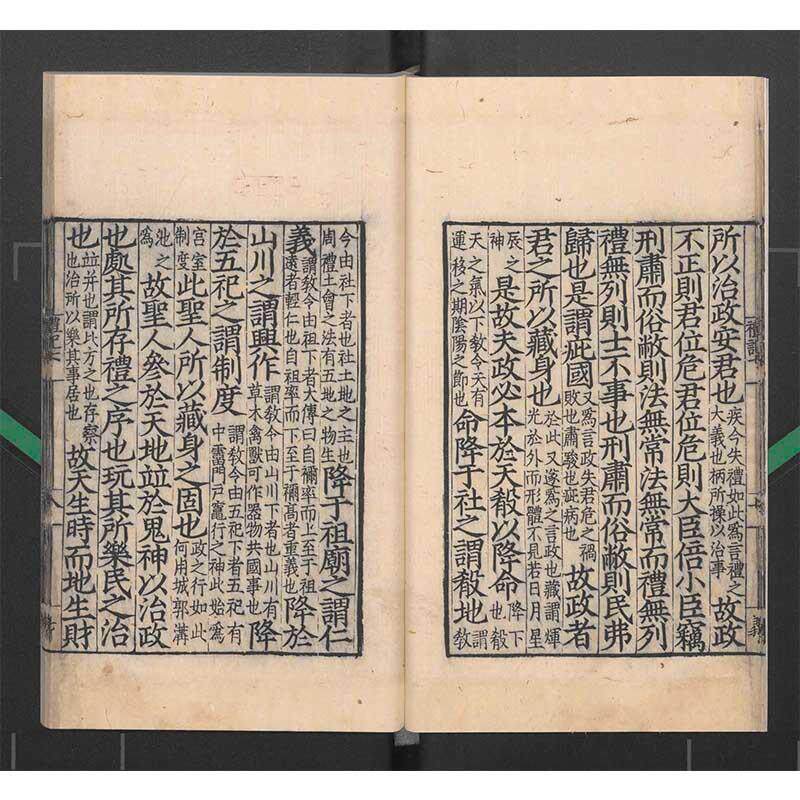 所以治政安君也疾今失禮如此爲言禮之大義也柄所操以治事故政
不正則君位危君位危則大臣倍小臣竊
刑肅而俗敝則法無常法無常而禮無列
禮無列則士不事也刑肅而俗敝則民弗
歸也是謂疵國又爲言政失君危之禍敗也肅駿也疵病也故政者
君之所以藏身也於此又遂爲之言政也藏謂煇光於外而形體不見若日月星
辰之神是故夫政必本於天殽以降命降下也殽
天之氣以下教令天有運移之期陰陽之節也命降于社之謂殽地謂教
今由社下者也社土地之主也周禮土會之法有五地之物生降于祖廟之謂仁
義謂教令由祖下者大傳曰自禰率而上至于祖遠者輕仁也自祖率而下至于禰高者重義也降於
山川之謂興作謂教令由山川下者也山川有草木禽獸可作器物共國事也降
於五祀之謂制度謂教令由五祀下者五祀有中霤門戶竈行之神此始爲
宮室制度此聖人所以藏身之固也政之行如此何用城郭溝
池之爲故聖人參於天地並於鬼神以治政
也處其所存禮之序也玩其所樂民之治
也並并也謂比方之也存察也治所以樂其事居也故天生時而地生財